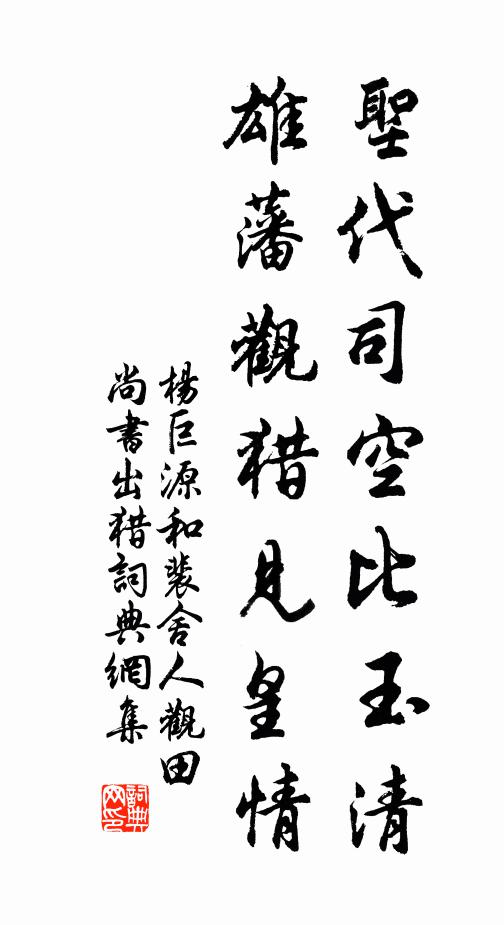 聖代司空比玉清
雄藩觀猎見皇情
楊巨源和裴舍人觀田
尚書出猎詞典網集
詞典網印